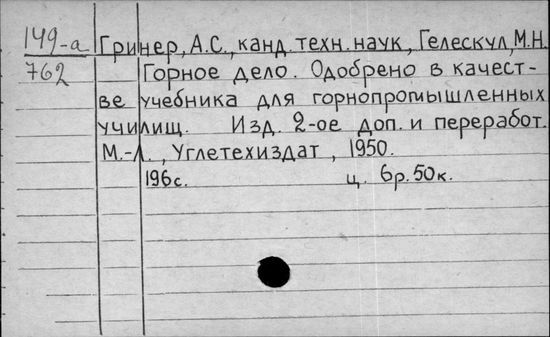 149-а Гринер, А.С., канд. техн. наук, Гелескул, М.Н.
762 Горное дело. Одобрено в качест-
ве учебника для горнопромышленных
училищ. Изд. 2-ое доп. и переработ.
М.-Л., Углетехиздат, 1950.
196с. ц. 6р. 50к.